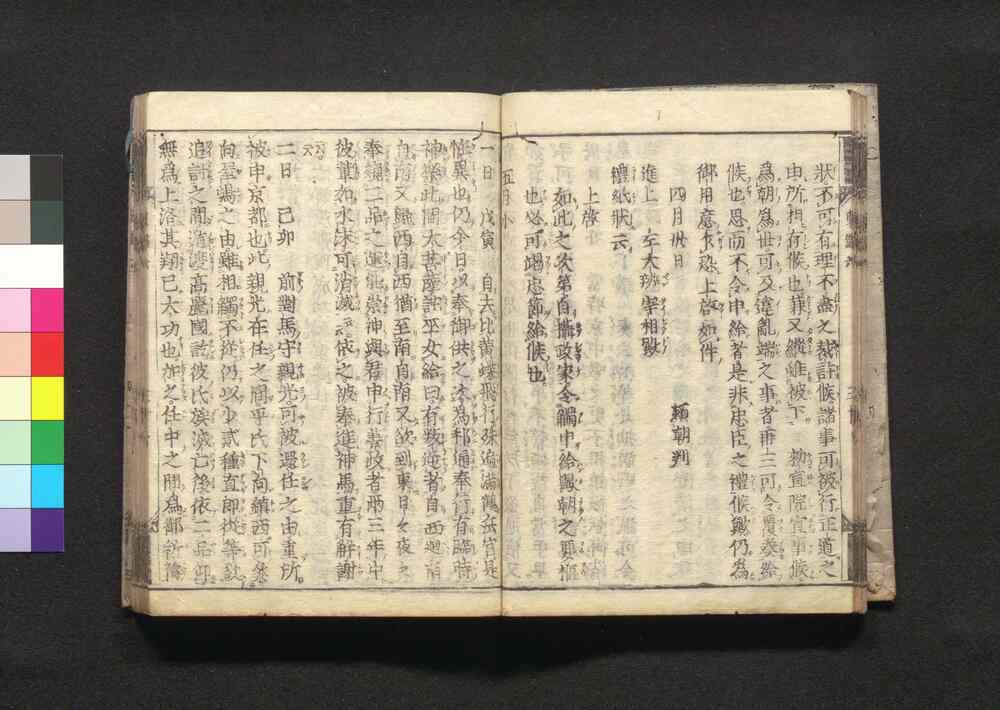 状不可有理不盡之裁許候諸事可被行正道之
由所相存候也兼又縱雖被下 勅宣院宣事候
爲朝爲世可及違亂端之事者再三可令覆奏給
候也恐而不令申給者是非忠臣之禮候歟仍爲
御用意乍恐上啓如件
四月卅日 頼朝判
進上 左大辨宰相殿
禮紙狀云
上啓
如此之次第自攝政家令觸申給歟朝之要樞
也必可竭忠節給候也
五月小
一日 戊寅 自去比黄蝶飛行殊遍滿鶴岳宮是
恠異也仍今日以奉御供之次爲邦通奉行有臨時
神樂此間大菩薩託巫女給曰有叛逆者自西廻南
自南又歸西自西猶至南自南又欲到東日々夜々
奉窺二品之運能崇神與君申行善政者兩三年中
彼輩如水沫可消滅云云依之被奉進神馬重有解謝
云云
二日 己卯 前對馬守親光可被還任之由重所
被申京都也此親光在任之間平氏下向鎮西可參
向屋嶋之由雖相觸不從仍以少貳種直郎從等擬
追討之間渡高麗國訖彼氏族滅亡後依二品仰
無爲上洛其翔已大功也